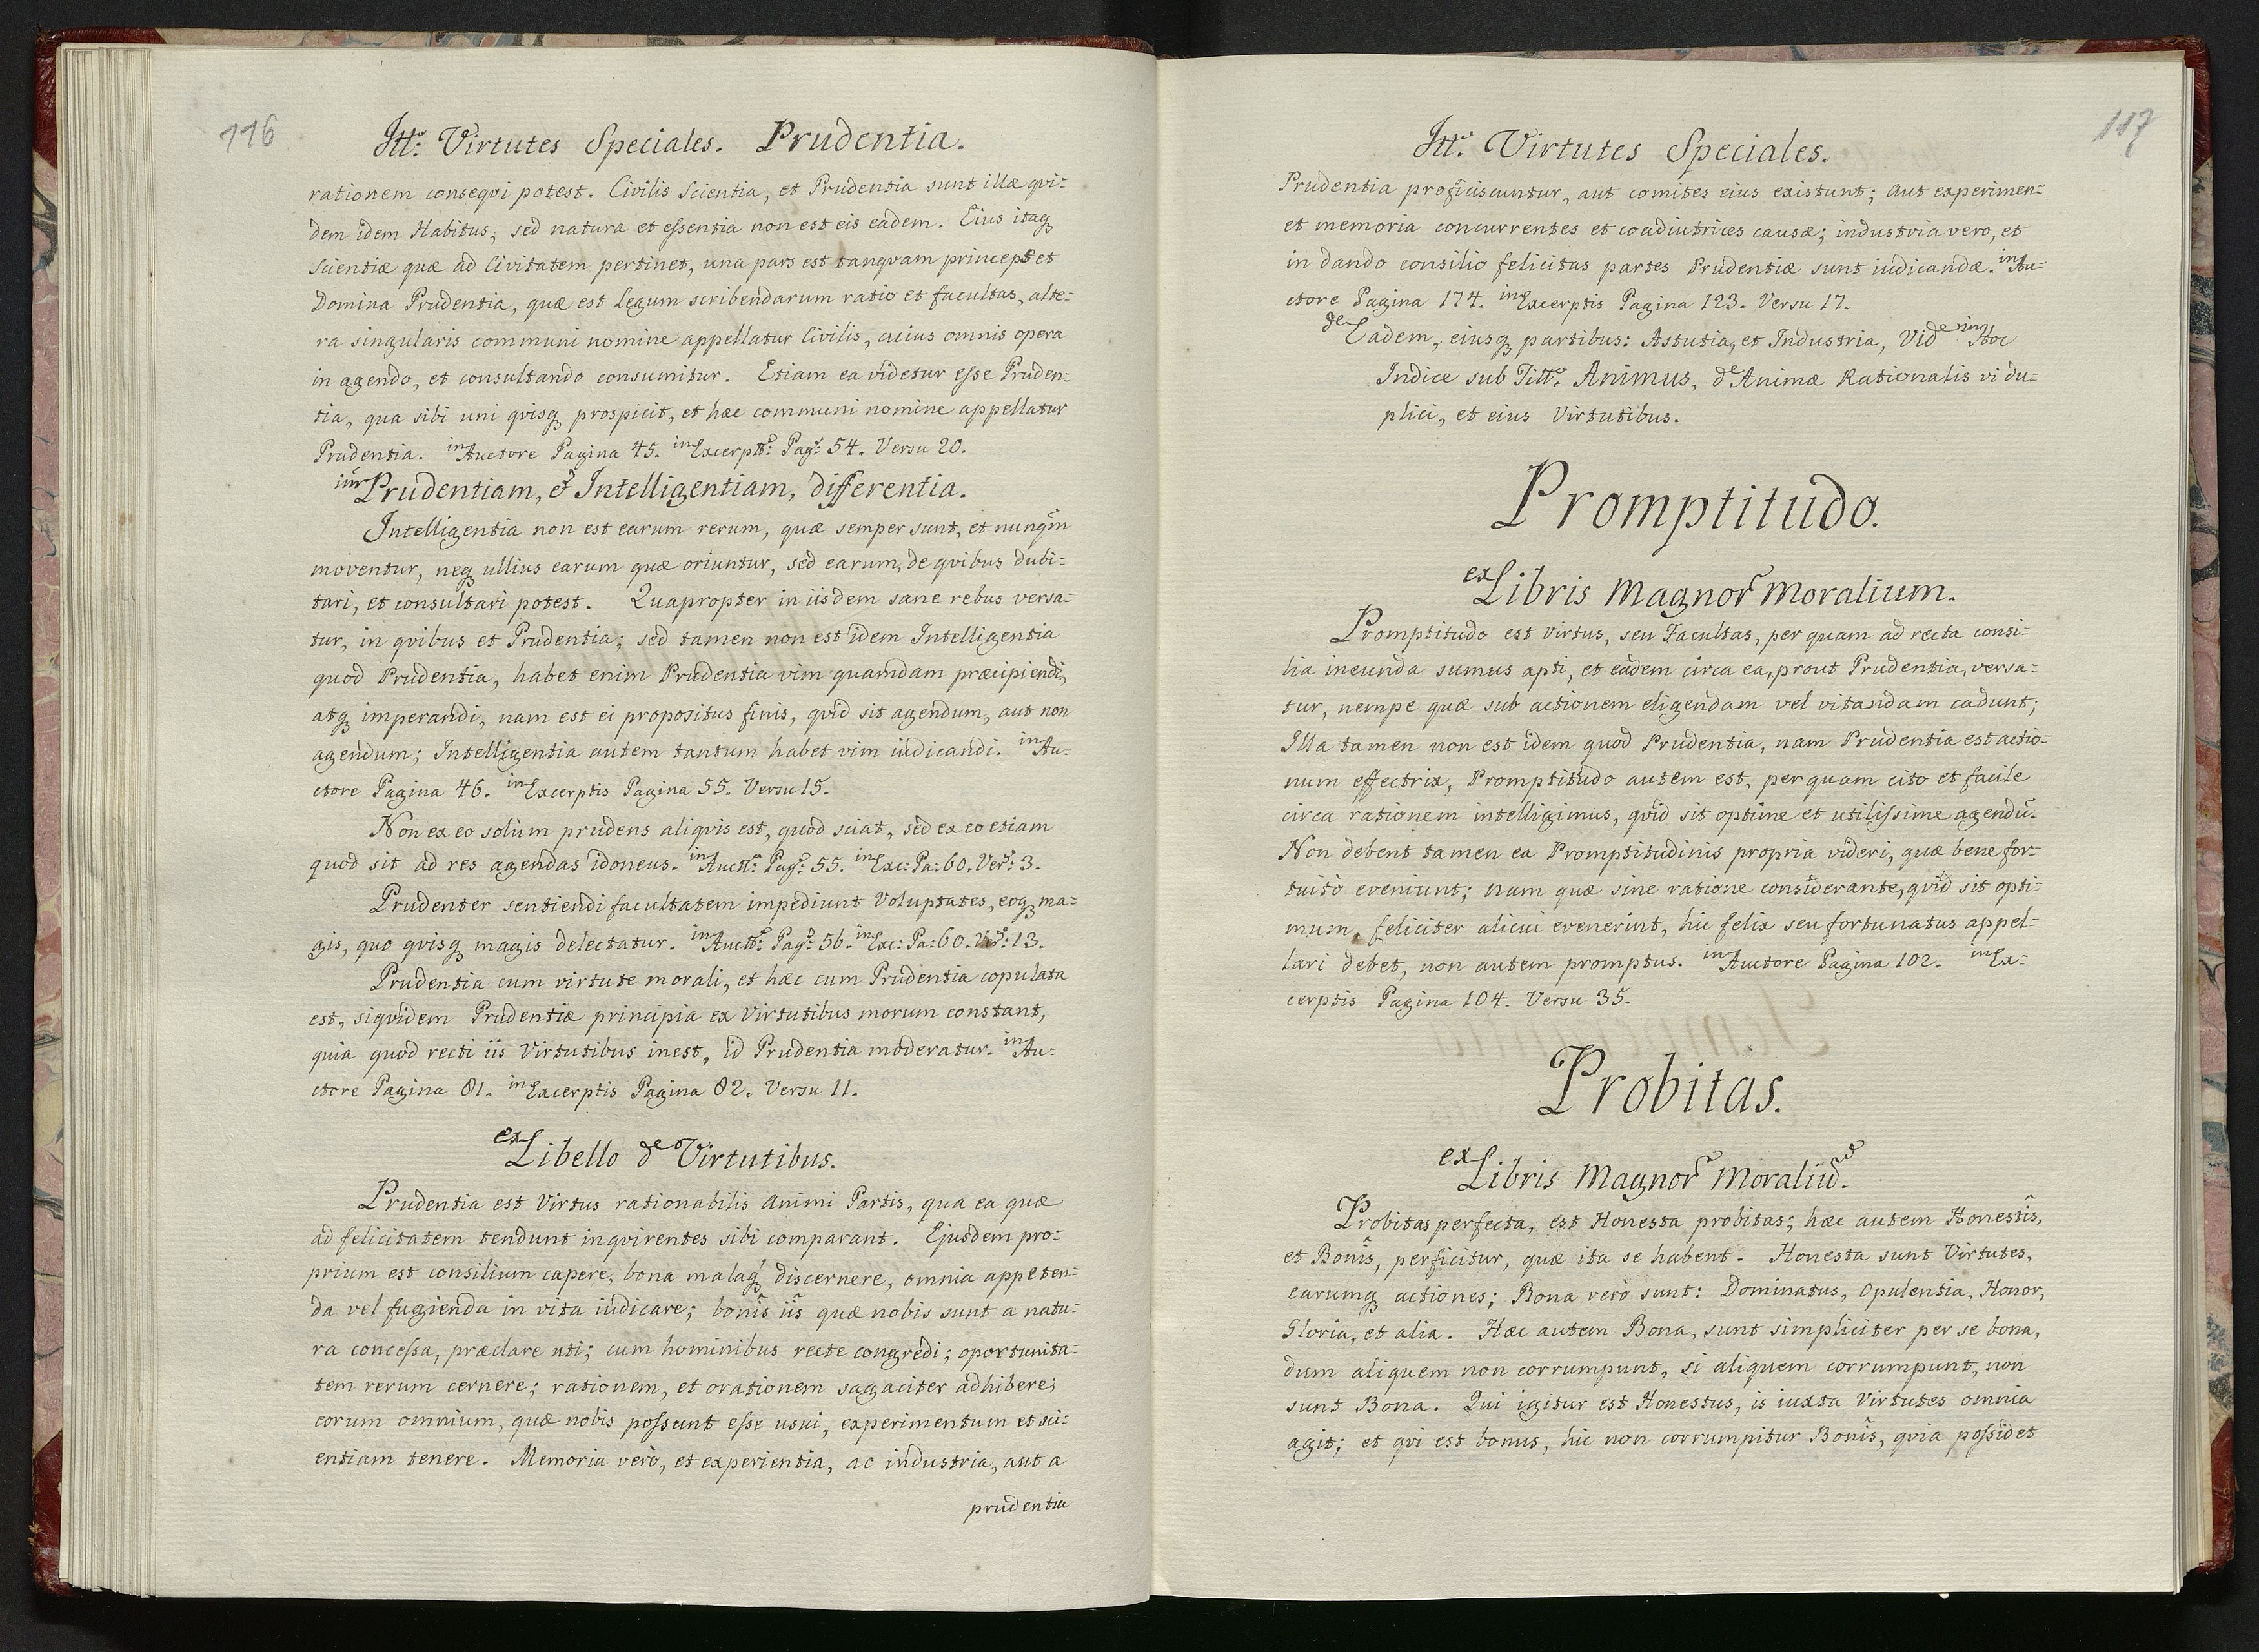 116
Itt: Virtutes Speciales. Prudentia.
rationem conseqvi potest. Civilis Scientia, et Prudentia sunt illæ qvi=
dem idem Habitus, sed natura et essentia non est eis eadem. Eius itaq
scientiæ quæ ad Civitatem pertinet, una pars est tanqvam princeps et
Domina Prudentia, quæ est Legum scribendarum ratio et facultas, alte=
ra singularis communi nomine appellatur Civilis, cuius omnis opera
in agendo, et consultando consumitur. Etiam ea videtur esse Pruden=
tia, qua sibi uni qvisq prospicit, et hæc communi nomine appellatur
Prudentia. in Auctore Pagina 45. in Excerptis: Pag: 54. Versu 20.
intr Prudentiam, et Intelligentiam, differentia.
Intelligentia non est earum rerum, quæ semper sunt, et nunqm̃
moventur, neq ullius earum quæ oriuntur, sed earum, de qvibus dubi=
tari, et consultari potest. Quapropter in iisdem sane rebus versa=
tur, in qvibus et Prudentia; sed tamen non est idem Intelligentia
quod Prudentia, habet enim Prudentia vim quamdam præcipiendi,
atq imperandi, nam est ei propositus finis, qvid sit agendum, aut non
agendum; Intelligentia autem tantum habet vim iudicandi. in Au=
ctore Pagina 46. in Excerptis Pagina 55. Versu 15.
Non ex eo solùm prudens aliqvis est, quod sciat, sed ex eo etiam
quod sit ad res agendas idoneus. in Auctt: Pag: 55. in Exc: Pa: 60. Ver: 3.
Prudenter sentiendi facultatem impediunt Voluptates, eoq ma=
gis, quo qvisq magis delectatur. in Auctt: Pag: 56. in Exc: Pa: 60. Ver: 13.
Prudentia cum virtute morali, et hæc cum Prudentia copulata
est, siqvidem Prudentiæ principia ex Virtutibus morum constant,
quia quod recti iis Virtutibus inest, id Prudentia moderatur. in Au=
ctore Pagina 81. in Excerptis Pagina 82. Versu 11.
ex Libello de Virtutibus.
Prudentia est Virtus rationabilis Animi Partis, qua ea quæ
ad felicitatem tendunt inqvirentes sibi comparant. Ejusdem pro=
prium est consilium capere, bona malaq discernere, omnia appeten=
da vel fugienda in vita iudicare; bonis̃ iis̃ quæ nobis sunt a natu=
ra concessa, præclare uti; cum hominibus recte congredi; oportunita=
tem rerum cernere; rationem, et orationem sagaciter adhibere;
eorum omnium, quæ nobis possunt esse usui, experimentum et sci=
entiam tenere. Memoria verò, et experientia, ac industria, aut a
prudentia
117
Itt: Virtutes Speciales.
Prudentia proficiscuntur, aut comites eius existunt; aut experimen=
et memoria concurrentes et coadiutrices causæ; industria vero, et
in dando consilio felicitas partes Prudentiæ sunt iudicandæ. in Au=
ctore Pagina 174. in Excerptis Pagina 123. Versu 17.
de Eadem, eiusq partibus: Astutia, et Industria, Vide in Hoc
Indice sub Titt: Animus, de Animæ Rationalis vi du=
plici, et eius Virtutibus.
Promptitudo.
ex Libris Magnor Moralium.
Promptitudo est Virtus, seu Facultas, per quam ad recta consi=
lia ineunda sumus apti, et eadem circa ea, prout Prudentia, versa=
tur, nempe quæ sub actionem eligendam vel vitandam cadunt;
Illa tamen non est idem quod Prudentia, nam Prudentia est actio=
num effectrix, Promptitudo autem est, per quam cito et facile
circa rationem intelligimus, qvid sit optime et utilissime agendũ.
Non debent tamen ea Promptitudinis propria videri, quæ bene for=
tuitò eveniunt; nam quæ sine ratione considerante, qvid sit opti=
mum, feliciter alicui evenerint, hic felix seu fortunatus appel=
lari debet, non autem promptus. in Auctore Pagina 102. in Ex=
cerptis Pagina 104. Versu 35.
Probitas.
ex Libris Magnor Moraliũ.
Probitas perfecta, est Honesta probitas; hæc autem Honestis̃,
et Bonis̃, perficitur, quæ ita se habent. Honesta sunt Virtutes,
earumq actiones; Bona verò sunt: Dominatus, Opulentia, Honor,
Gloria, et alia. Hæc autem Bona, sunt simpliciter per se bona,
dum aliquem non corrumpunt, si aliquem corrumpunt, non
sunt Bona. Qui igitur est Honestus, is iuxta Virtutes omnia
agit; et qvi est bonus, hic non corrumpitur Bonis̃, qvia possidet